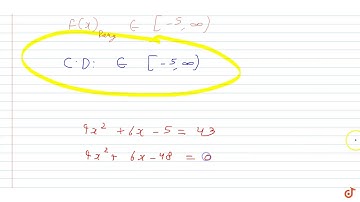 F(x) Rang ∈ [-5, ∞)
C.D: ∈ [-5, ∞)
4x² + 6x - 5 = 43
4x² + 6x - 48 = 0